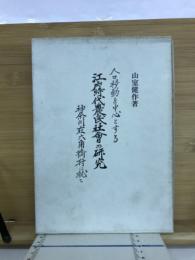 山室健作著
人口移動を中心とする
江戸時代農民社会の研究
神奈川県六角橋村の就て